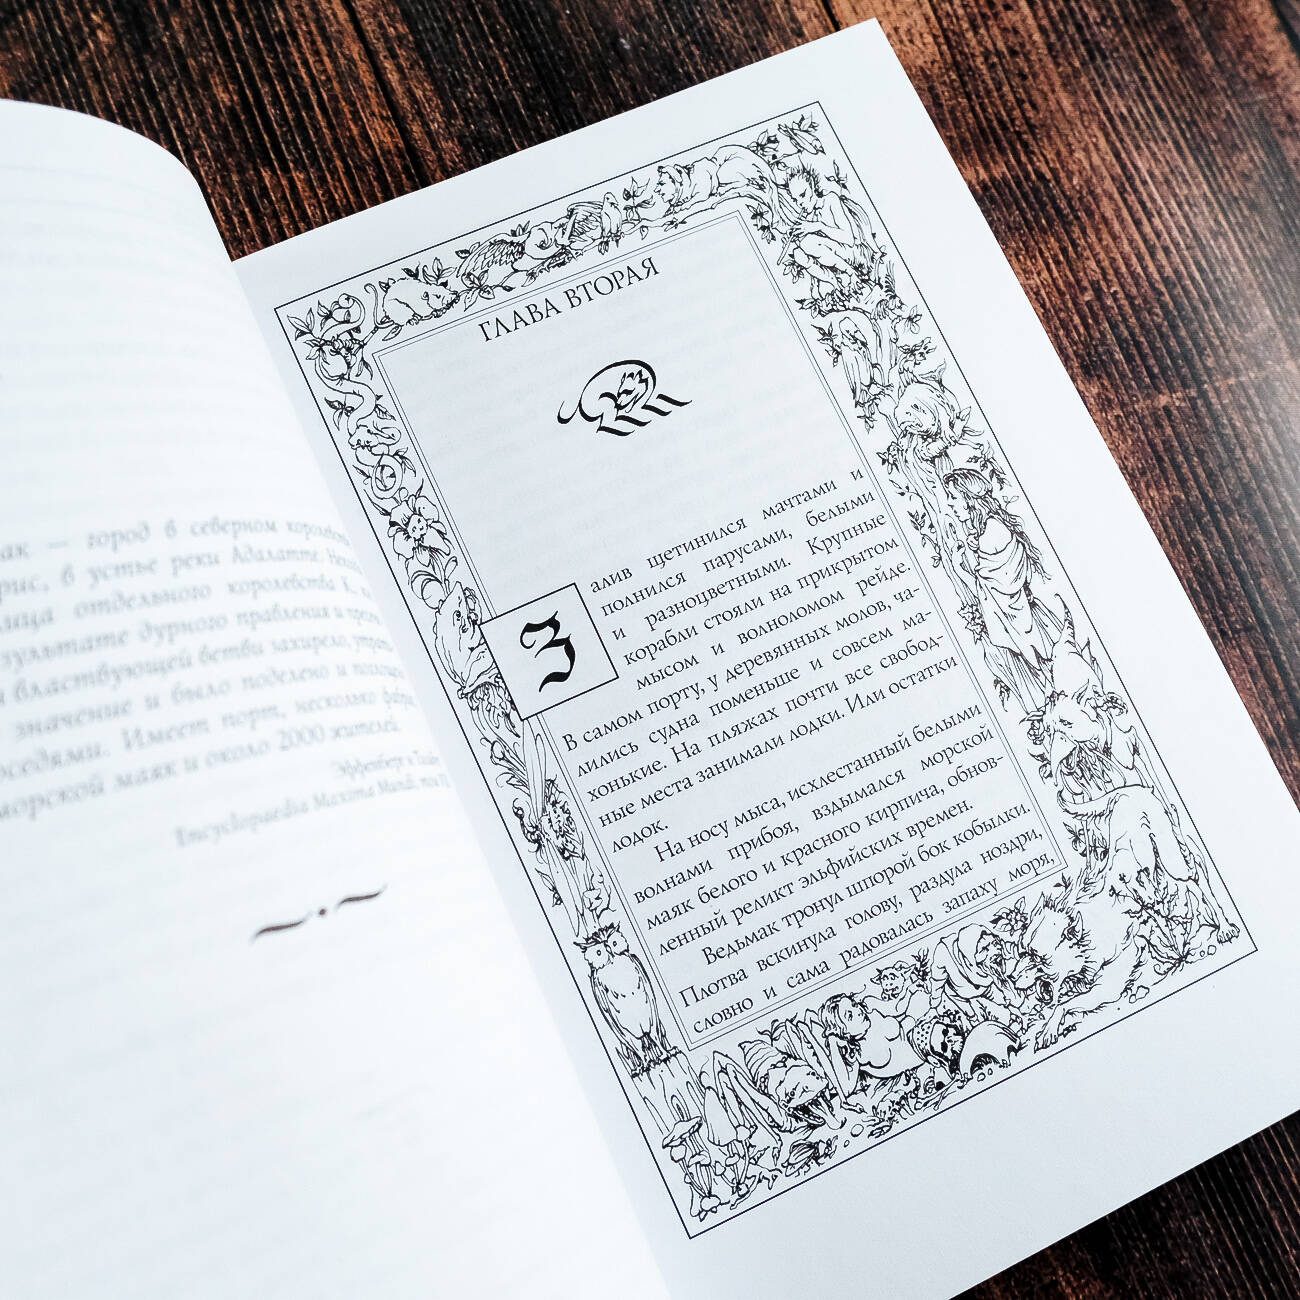 ак — город в северном
рис, в устье реки Адалатте.
лица отдельного королевства К
зультате дурного правления и
властвующей ветви захирело,
значение и было поделено и
оседями. Имеет порт, несколько
морской маяк и около 2000 жителей.
Encyclopaedia Maxima Mundi,
ГЛАВА ВТОРАЯ
Залив щетинился мачтами и
полнился парусами, белыми
и разноцветными. Крупные
корабли стояли на прикрытом
мысом и волноломом рейде.
В самом порту, у деревянных молов, ча-
лились судна поменьше и совсем ма-
хонькие. На пляжах почти все свобод-
ные места занимали лодки. Или остатки
лодок.
На носу мыса, исхлестанный белыми
волнами прибоя, вздымался морской
маяк белого и красного кирпича, обнов-
ленный реликт эльфийских времен.
Ведьмак тронул шпорой бок кобылки.
Плотва вскинула голову, раздула ноздри,
словно и сама радовалась запаху моря,